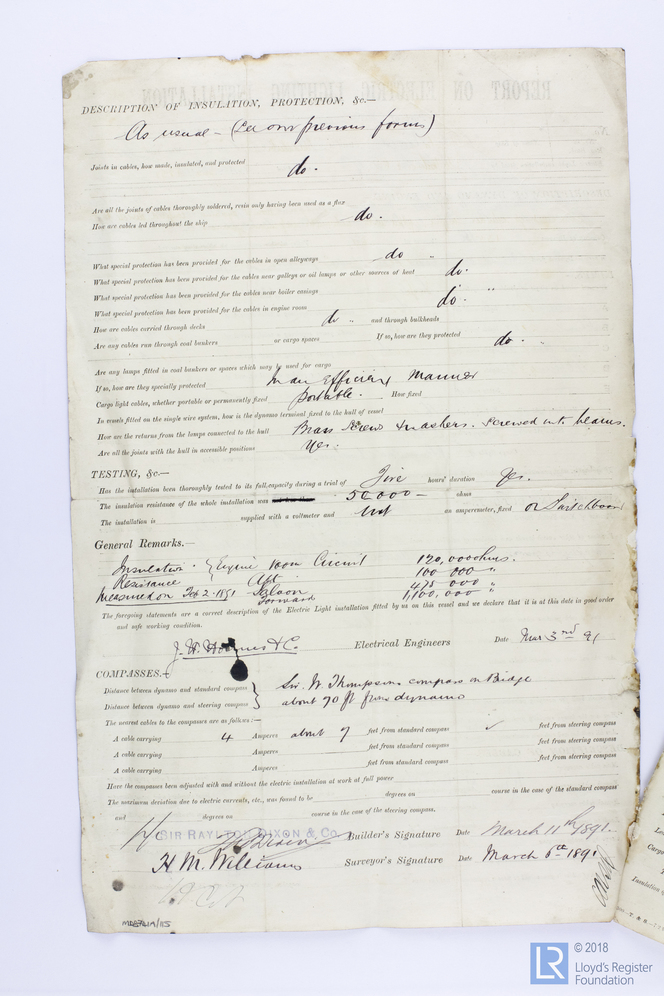 DESCRIPTION OF INSULATION, PROTECTION, &c.—
As usual – (see our previous forms)
Joints in cables, how made, insulated, and protected do.
Are all the joints of cables thoroughly soldered, resin only having been used as a flux do.
How are cables led throughout the ship
What special protection has been provided for the cables in open alleyways do "
What special protection has been provided for the cables near galleys or oil lamps or other sources of heat do.
What special protection has been provided for the cables near boiler casings do. "
What special protection has been provided for the cables in engine room
How are cables carried through decks do " and through bulkheads
Are any cables run through coal bunkers or cargo spaces If so, how are they protected do. "
Are any lamps fitted in coal bunkers or spaces which may be used for cargo
If so, how are they specially protected In an Efficient Manner
Cargo light cables, whether portable or permanently fixed portable. How fixed
In vessels fitted on the single wire system, how is the dynamo terminal fixed to the hull of vessel
How are the returns from the lamps connected to the hull Brass Screws & washers. Screwed into beams.
Are all the joints with the hull in accessible positions Yes.
TESTING, &c.—
Has the installation been thoroughly tested to its full capacity during a trial of Five hours' duration Yes.
The insulation resistance of the whole installation was 50000 – ohms
The installation is supplied with a voltmeter and an amperemeter, fixed on Switchboard
General Remarks.—
Insulation Engine room Circuit 120,000 ohms.
Resistance Aft 100 000 "
Measured on Feb 2 - 1891 Saloon 475 000 "
Forward 1,100,000 "
The foregoing statements are a correct description of the Electric Light installation fitted by us on this vessel and we declare that it is at this date in good order
and safe working condition.
J. H. Holmes & Co. Electrical Engineers Date Mar 3rd 91
COMPASSES.—
Distance between dynamo and standard compass Sir W. Thompsons compass on Bridge
Distance between dynamo and steering compass about 90 ft from dynamo
The nearest cables to the compasses are as follows:—
A cable carrying 4 Amperes about 9 feet from standard compass ✓ feet from steering compass
A cable carrying Amperes feet from standard compass feet from steering compass
A cable carrying Amperes feet from standard compass feet from steering compass
Have the compasses been adjusted with and without the electric installation at work at full power
The maximum deviation due to electric currents, etc., was found to be degrees on course in the case of the standard compass
and degrees on course in the case of the steering compass.
SIR RAYLTON DIXON & Co. Builder's Signature Date March 11th 1891.
H. M. Williams Surveyor's Signature Date March 6th 1891
© 2018
LR
Lloyd's Register
Foundation